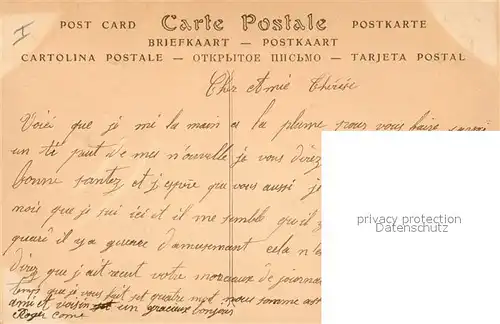 I
POST CARD Carte Postale POSTKARTE
BRIEFKAART — POSTKAART
CARTOLINA POSTALE — ОТКРЫТОЕ ПИСЬМО — TARJETA POSTAL
Cher Amie Thérèse
Voici que je mi la main a la plume pour vous faire
un ti peut de mes n'ouvelle je vous direz
bonne santez et j'espère que vous aussi je
mois que je sui ici et il me semble qu'il y
quard il y a guerre d'amusement cela n'a
direz que j'ait reçut votre morceaux de journal
temps que je vous fait set quatre mot nous somme
ami et voison un gracieux bonjour
Roger come
privacy protection
privacy protection